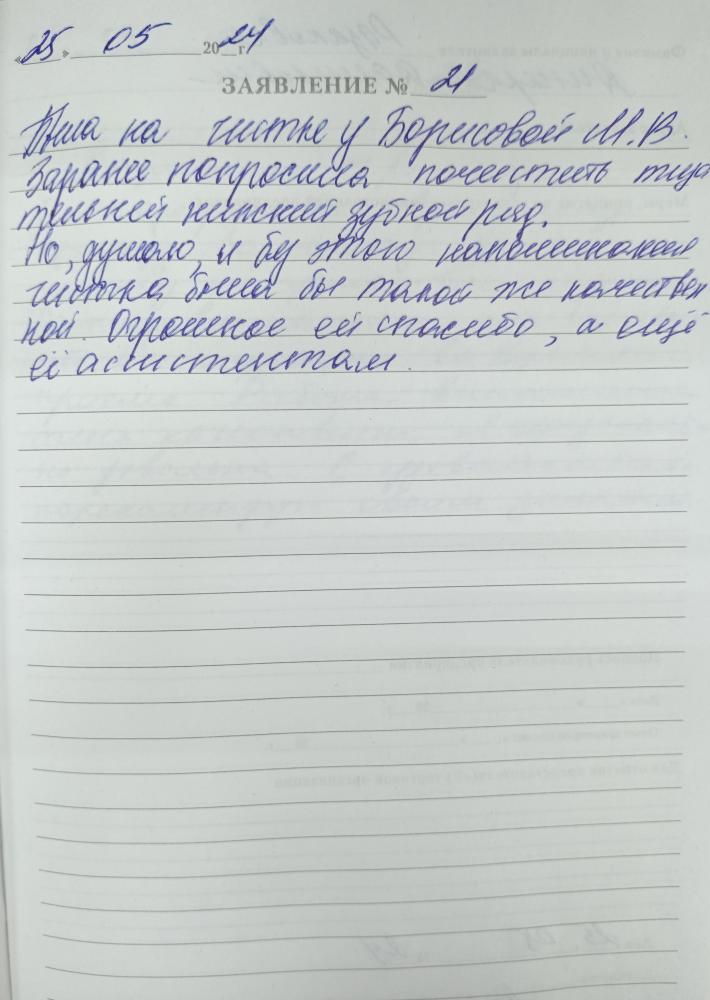 «25» 05 2024 г.
ЗАЯВЛЕНИЕ № 21
Была на чистке у Борисовой М.В.
Заранее попросила почистить тща
тельней нижний зубной ряд.
Но, думаю, и без этого напоминания
чистка была бы такой же качествен
ной. Огромное ей спасибо, а ещё
её ассистентам.